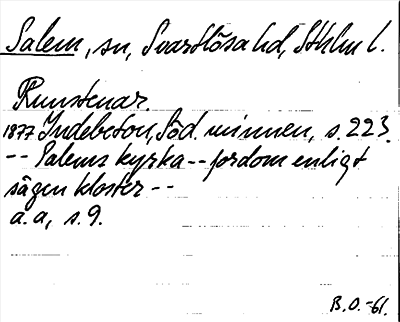 Salem, sn, Svartlösa hd, Sthlm l.
Runstenar.
1877 Indebetou, Söd. minnen, s. 223.
-- Salems kyrka -- fordom enligt
sägen kloster --
a.a, s. 9.
B.O. -61.